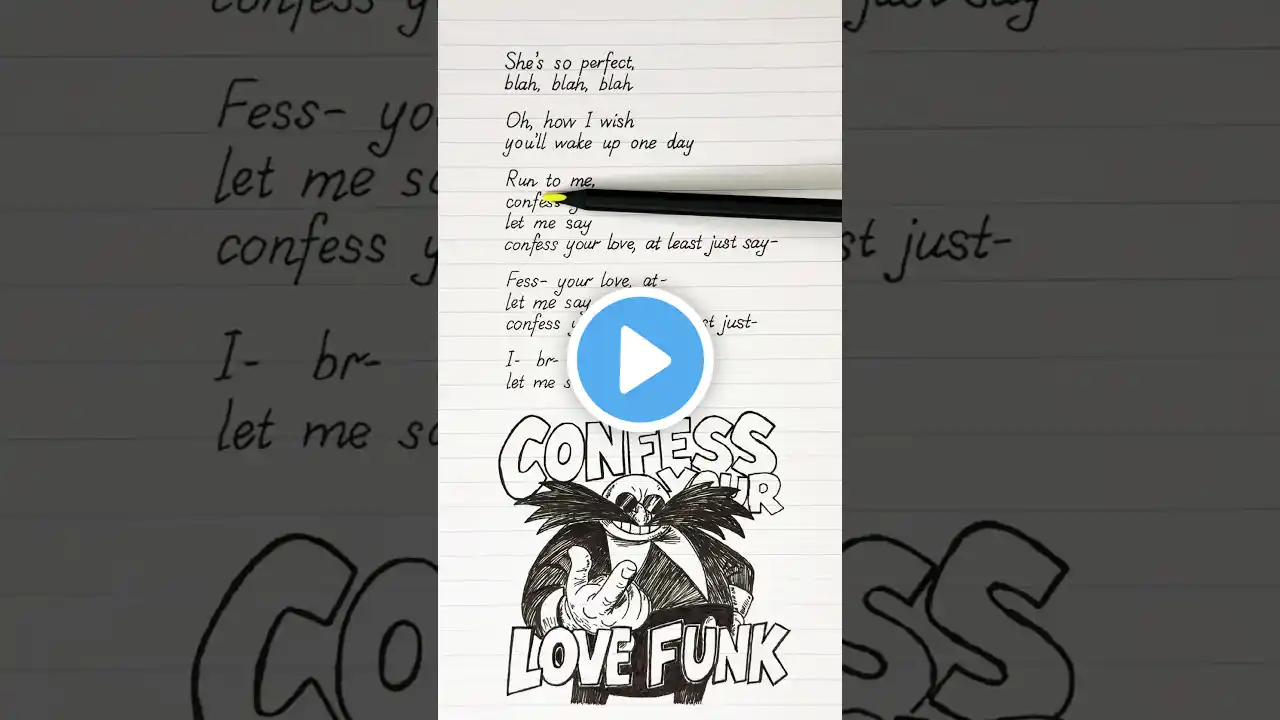 She's so perfect,
blah, blah, blah
Oh, how I wish
you'll wake up one day
Run to me,
confess y
let me say
confess your love, at least just say-
Fess- your love, at-
let me say
confess y st just-
I- br-
let me s
CONFESS
YOUR
LOVE FUNK